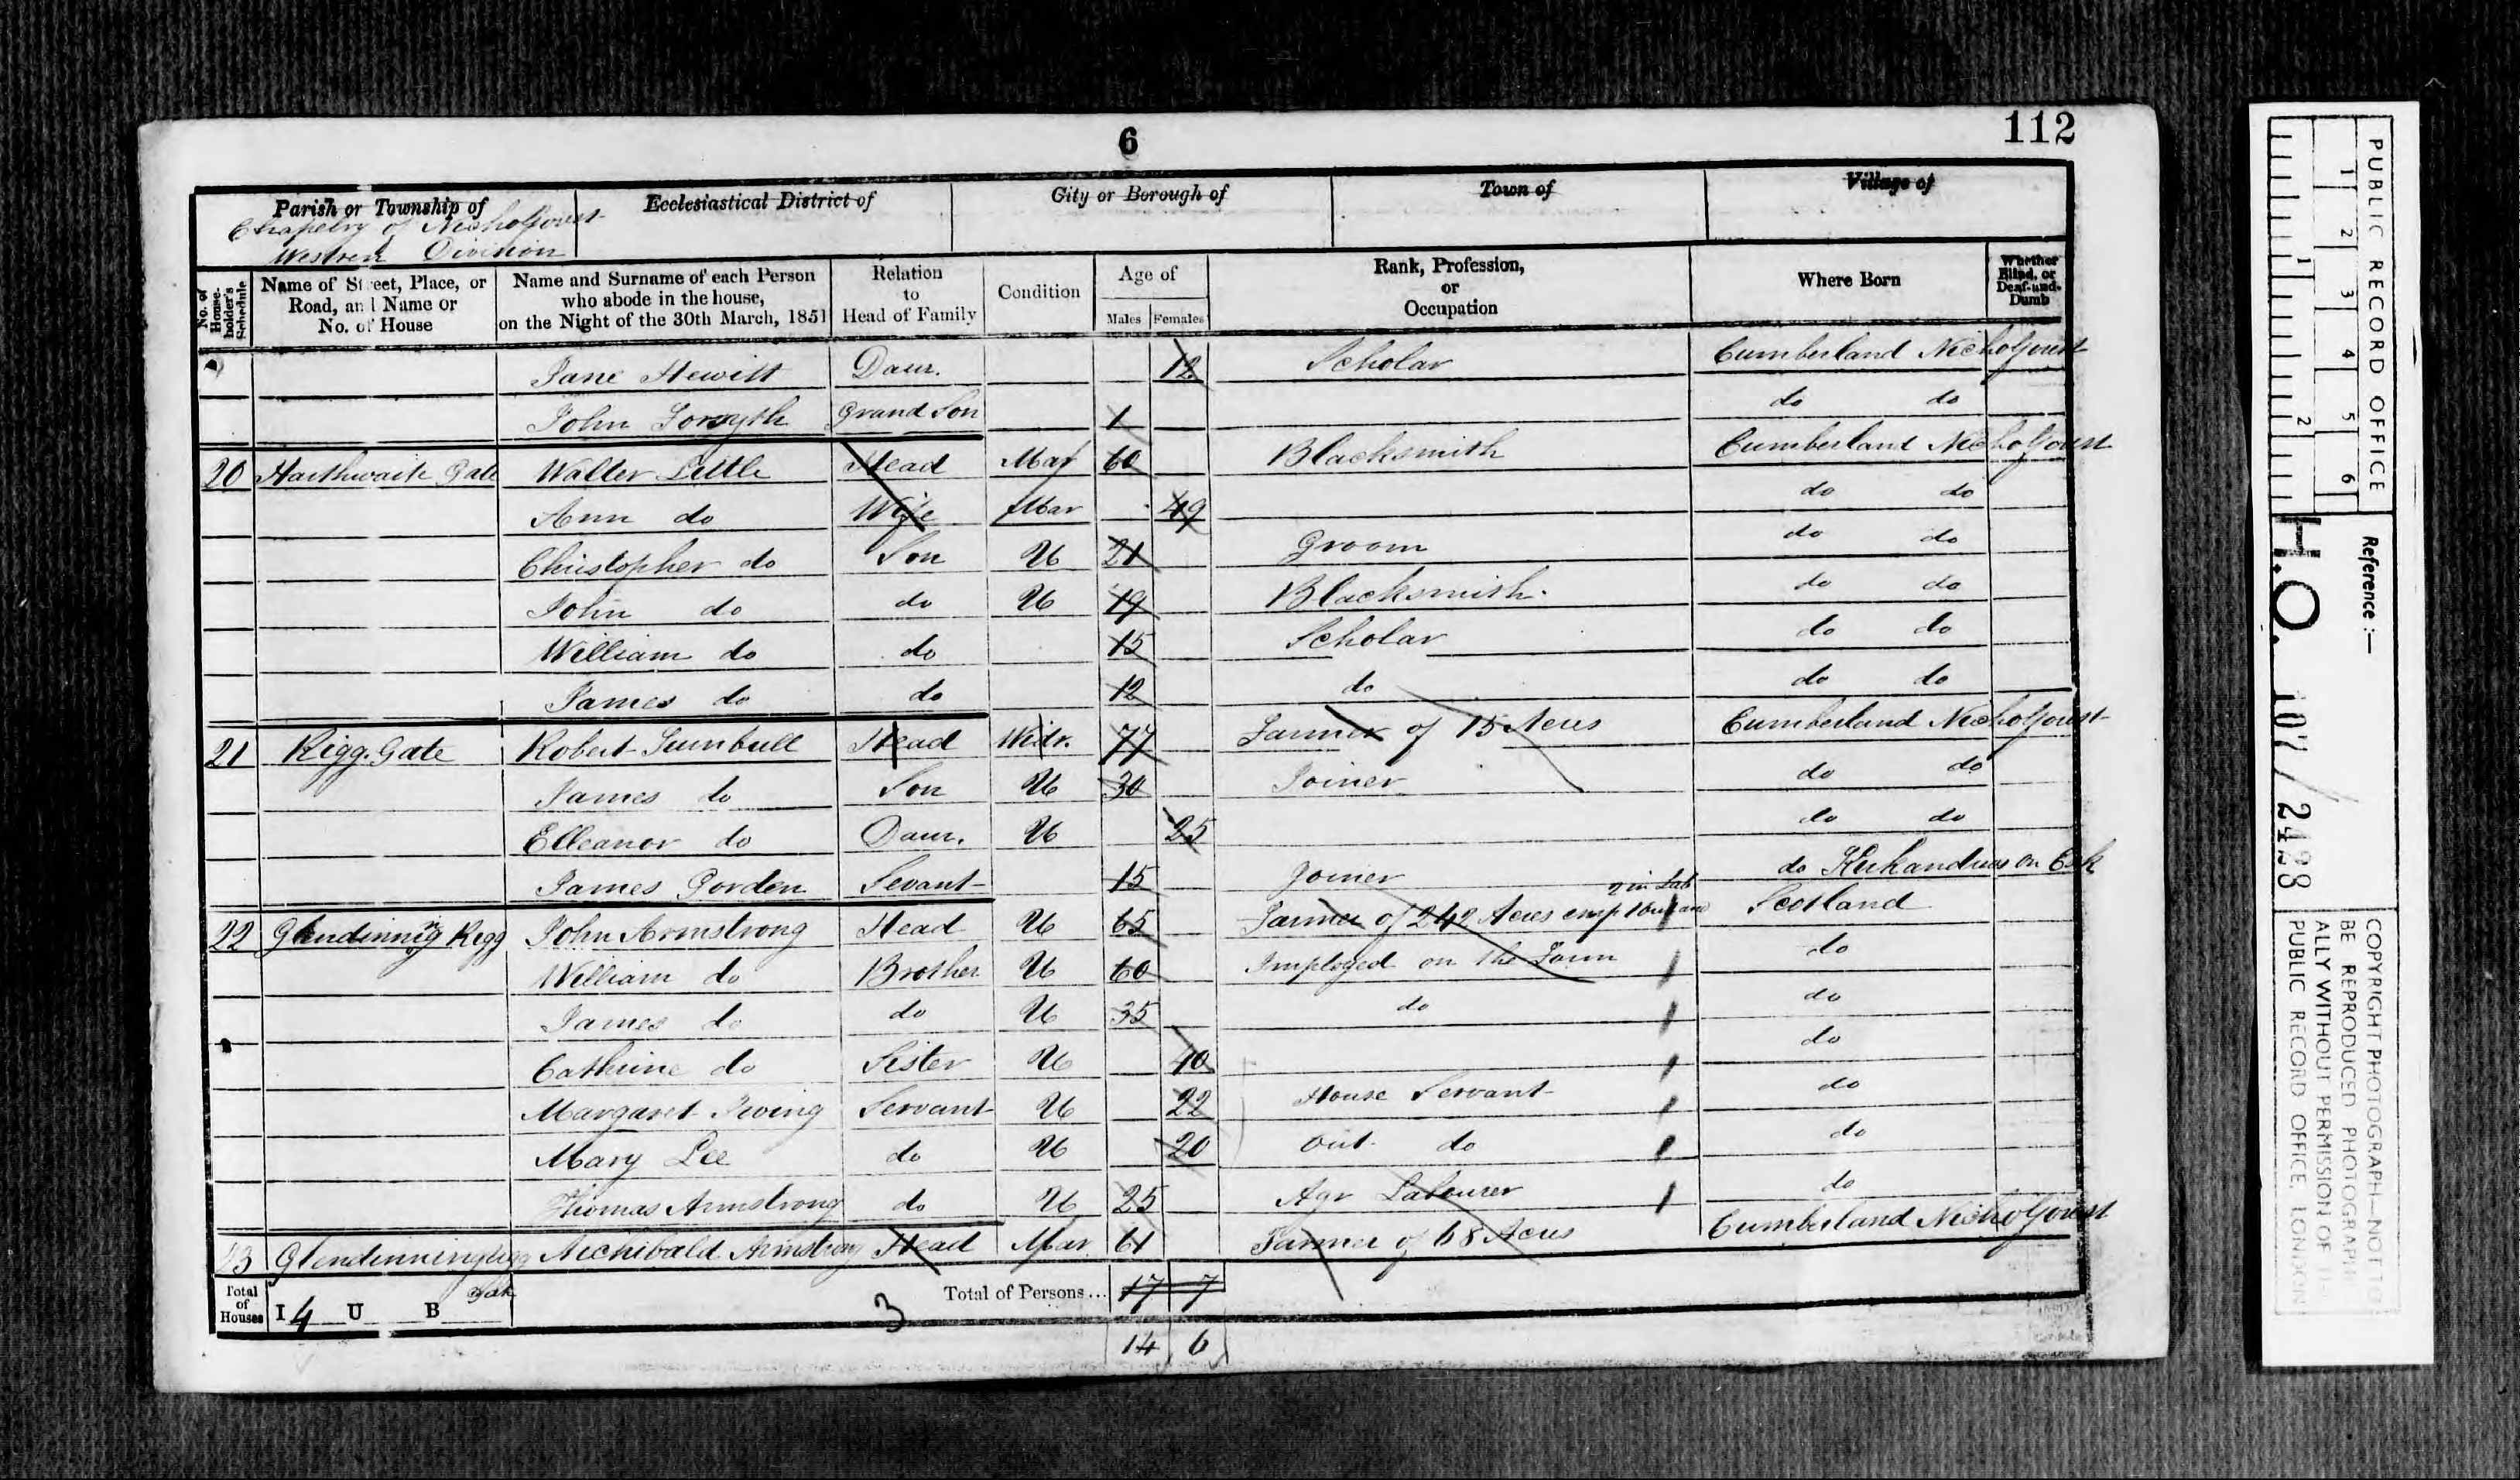 6
112
Parish or Township of
Chapelry of Nicholforest
Western Division
Ecclesiastical District of
City or Borough of
Town of
Village of
No. of House-holder's Schedule
Name of Street, Place, or Road, and Name or No. of House
Name and Surname of each Person who abode in the house, on the Night of the 30th March, 1851
Relation to Head of Family
Condition
Age of
Males Females
Rank, Profession, or Occupation
Where Born
Whether Blind, or Deaf-and-Dumb
Jane Hewitt Daur. 12 Scholar Cumberland Nicholforest
John Forsyth Grand Son 1 do do
20 Haithwaite Gate Walter Little Head Mar 60 Blacksmith Cumberland Nicholforest
Ann do Wife Mar 49 do do
Christopher do Son U 21 Groom do do
John do do U 19 Blacksmith. do do
William do do 15 Scholar do do
James do do 12 do do do
21 Rigg. Gate Robert Turnbull Head Widr. 77 Farmer of 15 Acres Cumberland Nicholforest
James do Son U 30 Joiner do do
Elleanor do Daur. U 25 do do
James Gorden Sevant 15 Joiner do Kirkandrews on Esk
22 Glendinning Rigg John Armstrong Head U 65 Farmer of 242 Acres emp 1 Scotland
William do Brother U 60 Imployed on the Farm do
James do do U 35 do do
Cathrine do Sister U 40 do
Margaret Irving Servant U 22 House Servant do
Mary Lee do U 20 out do do
Thomas Armstrong do U 25 Agr Labourer do
23 Glendinningrigg Archibald Armstrong Head Mar 61 Farmer of 68 Acres Cumberland Nicholforest
Total of Houses I 4 U B
3
Total of Persons... 17 7
14 6
PUBLIC RECORD OFFICE
1 2 3 4 5 6
1 2
Reference :—
H.O. 107/2433
COPYRIGHT PHOTOGRAPH—NOT TO
BE REPRODUCED PHOTOGRAPHIC-
ALLY WITHOUT PERMISSION OF THE
PUBLIC RECORD OFFICE, LONDON